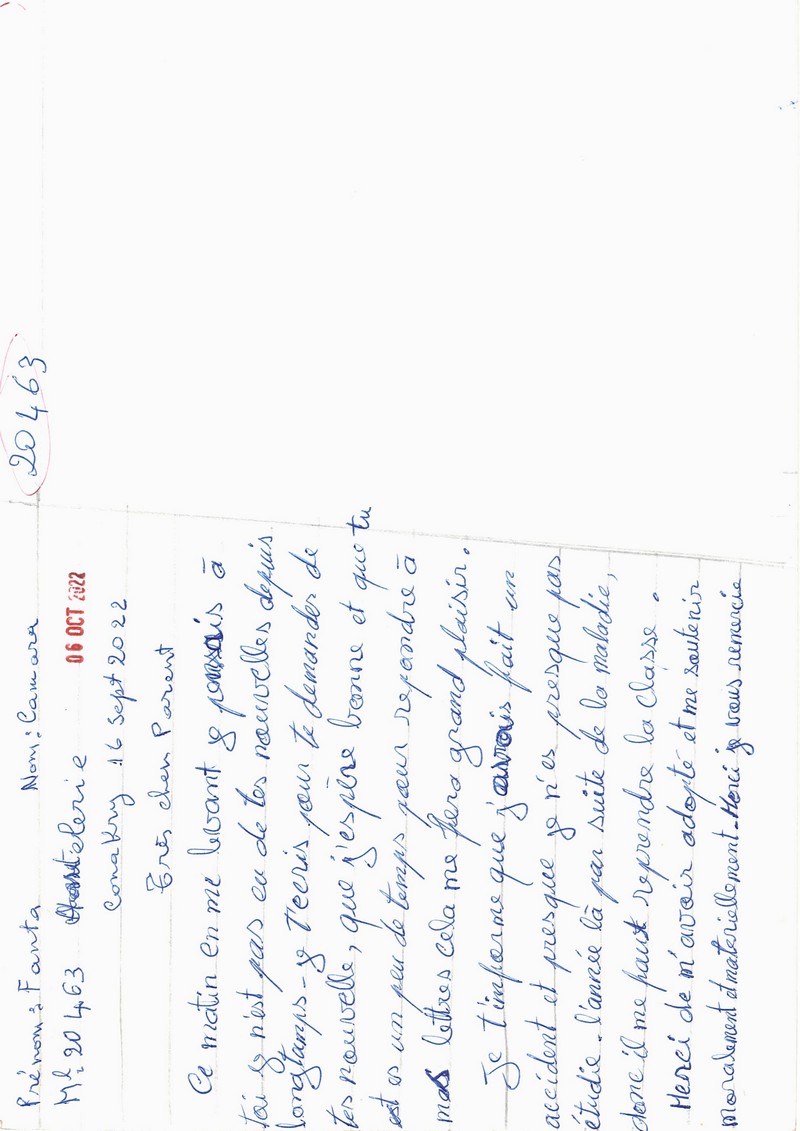 Prénom: Fanta Nom: Camara 20463
Ml: 20463 06 OCT 2022
Conakry 16 sept 2022
Très cher Parent
Ce matin en me levant je pensais à
toi je n'est pas eu de tes nouvelles depuis
longtamps - je t'ecris pour te demander de
tes nouvelle, que j'espère bonne et que tu
as un peu de temps pour repondre à
mes lettres cela me fera grand plaisir.
Je t'informe que j'avais fait un
accident et presque je n'es presque pas
étudie l'année là par suite de la maladie,
donc il me faut reprendre la classe.
Merci de m'avoir adopté et me soutenir
moralement et matériellement - Merci je vous remercie